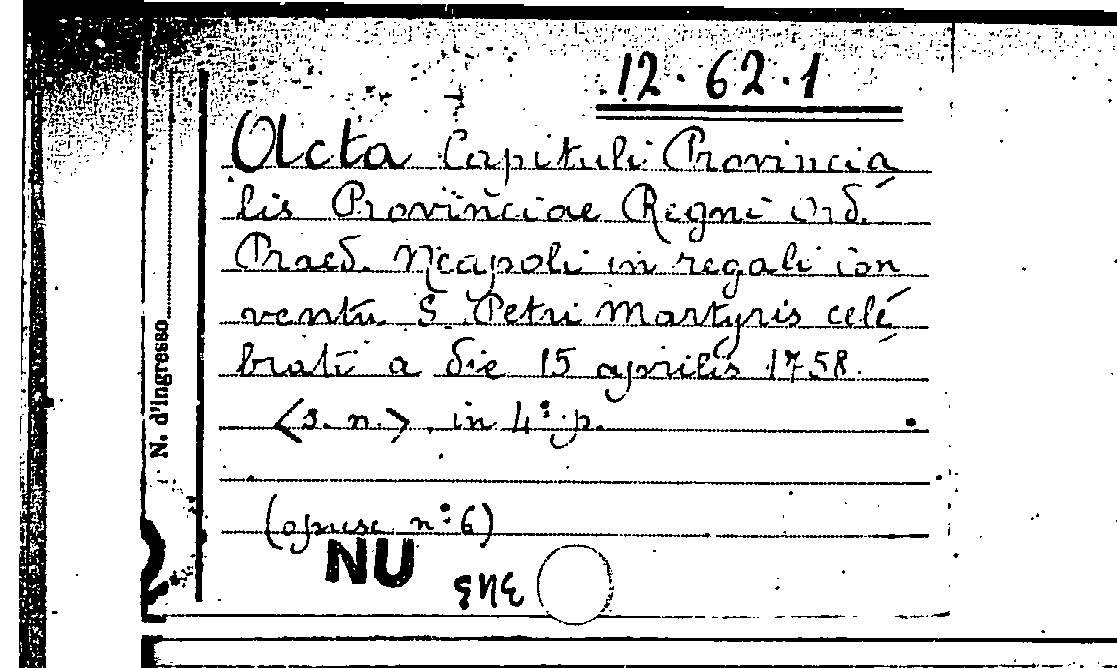 12.62.1
Acta Capituli Provincia
lis Provinciae Regni Ord.
Praed. Neapoli in regali con
ventu S. Petri Martyris cele
brati a die 15 aprilis 1758.
<s. n.>. in 4° p.
(opusc n° 6)
NU
N. d'Ingresso